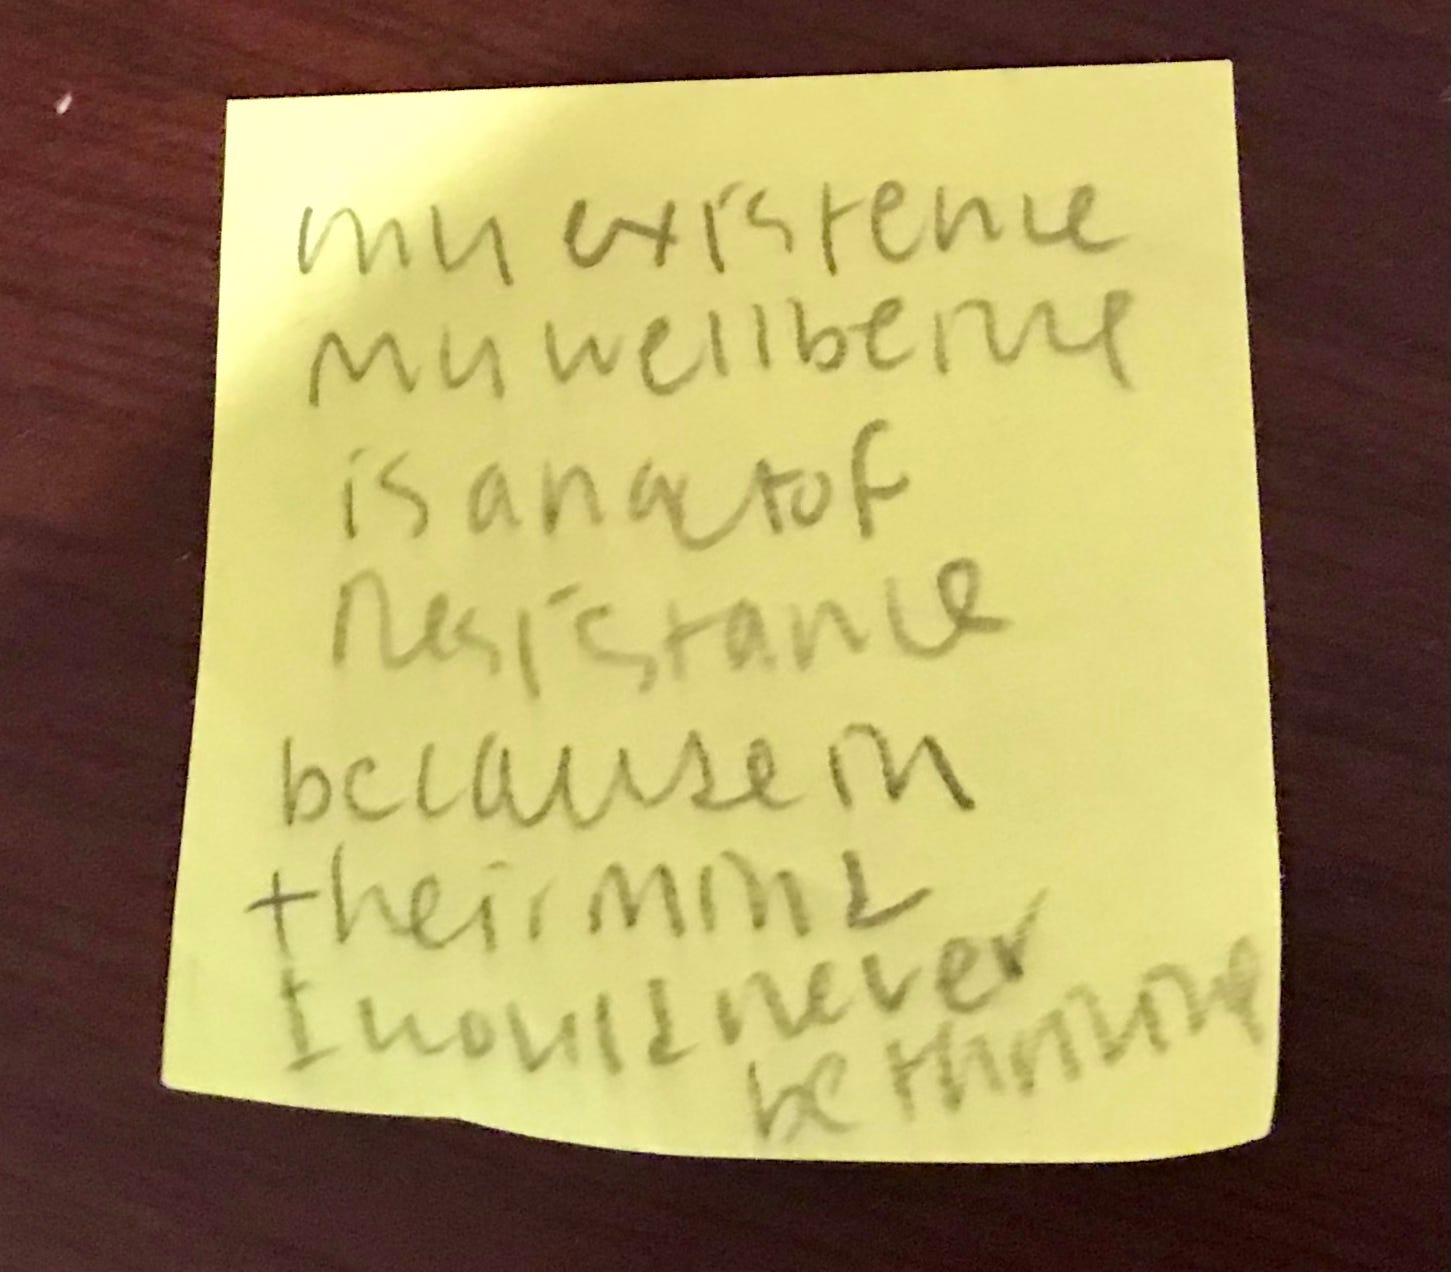 my existence
my wellbeing
is an act of
Resistance
because in
their mind
I would never
be thriving